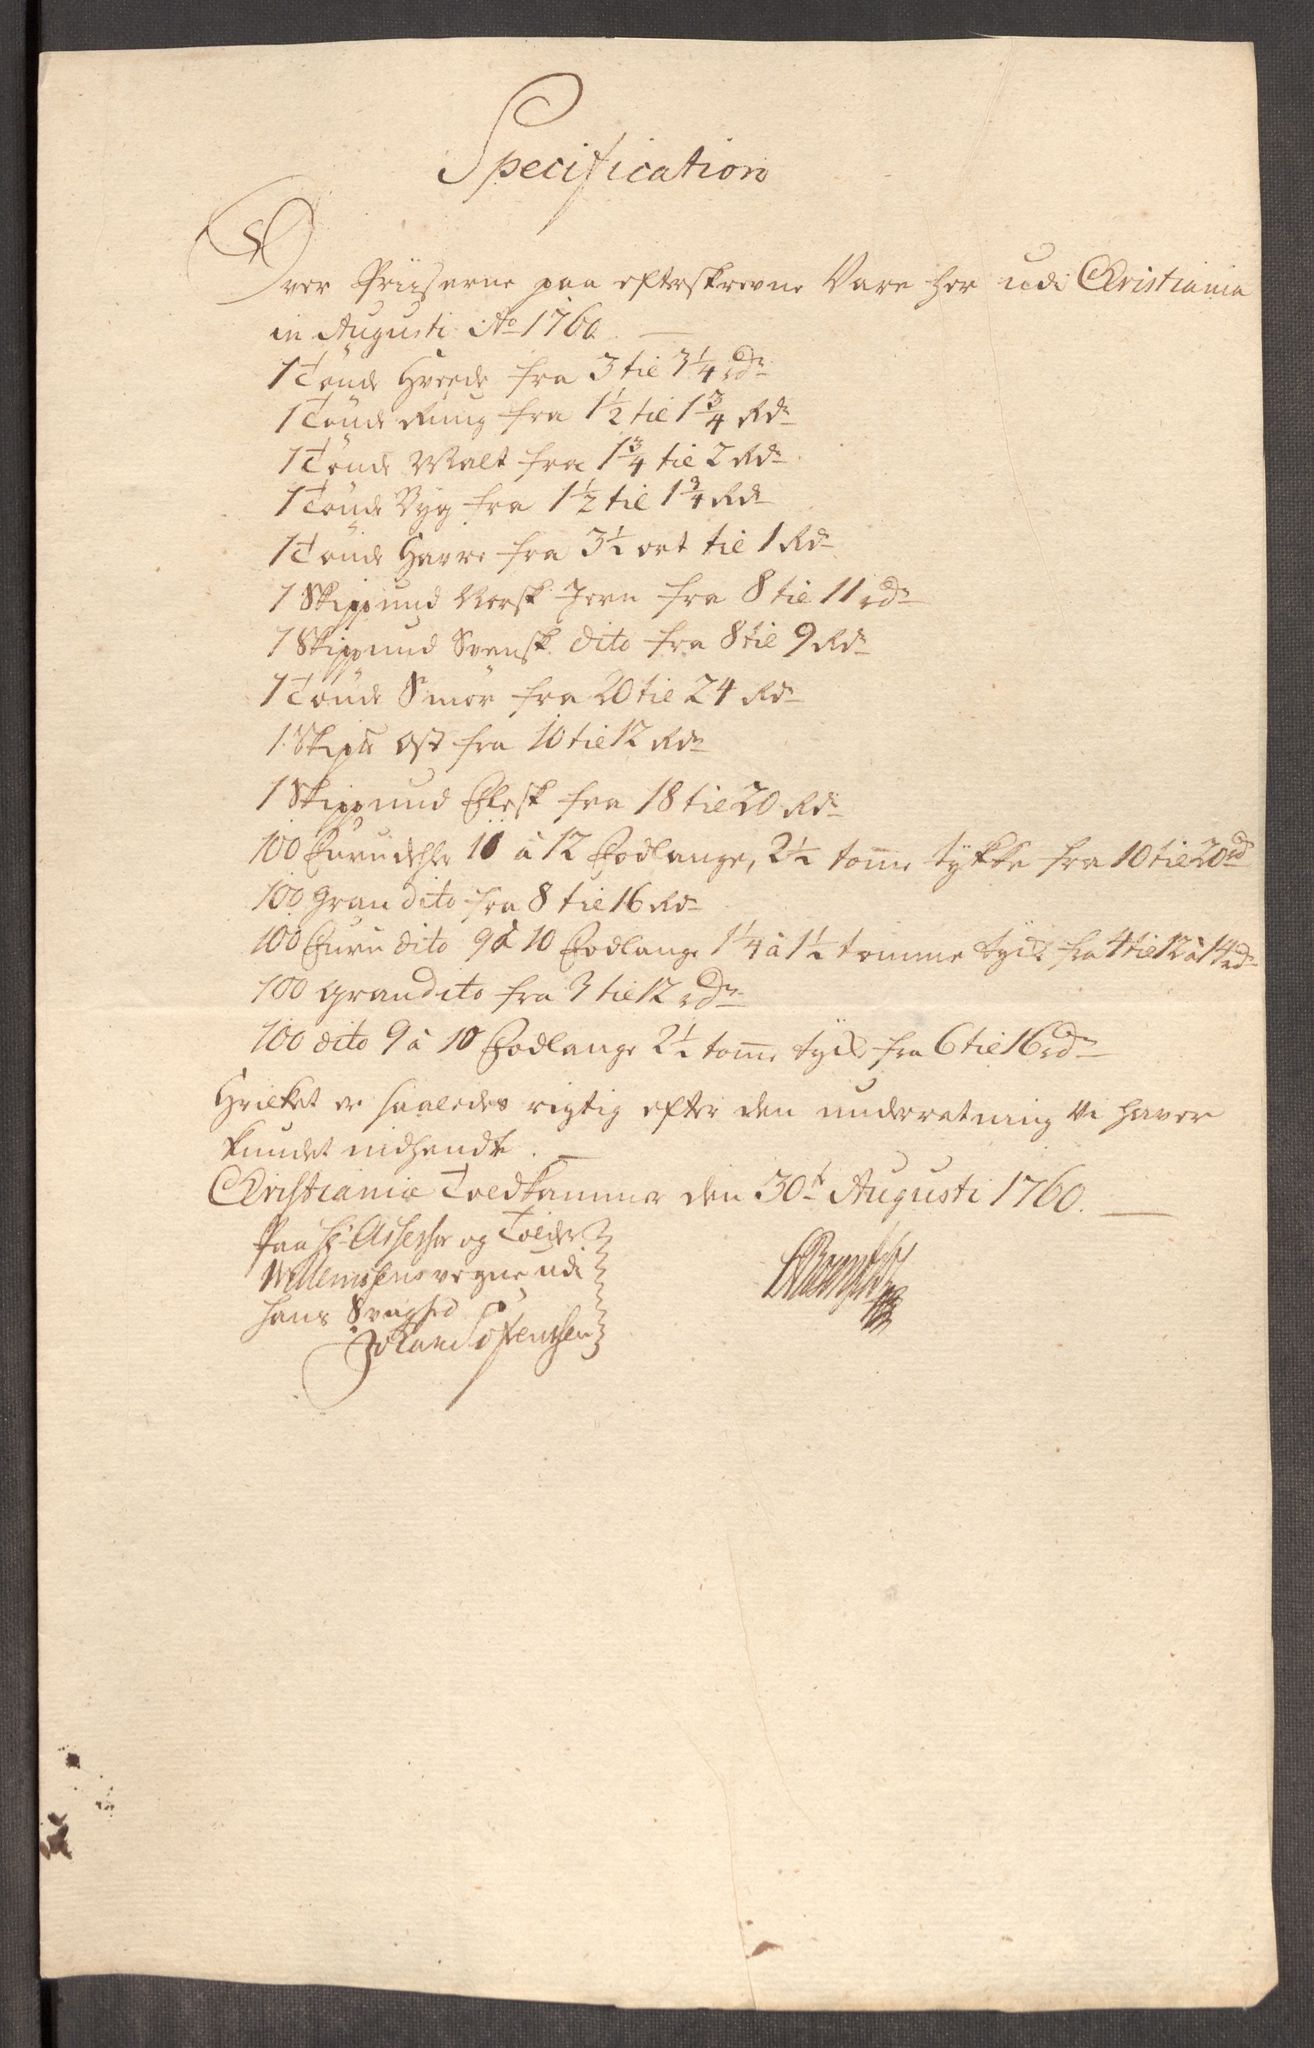 Specification
Over Priiserne paa efterskrevne Vare her udi Christiania
in Augusti Ao 1760
1 Tønde Hveede fra 3 til 3 1/4 rdr
1 Tønde Rug fra 1 1/2 til 1 3/4 Rdr
1 Tønde Malt fra 1 3/4 til 2 Rdr
1 Tønde Byg fra 1 1/2 til 1 3/4 Rdr
1 Tønde Havre fra 3 1/2 ort til 1 Rdr
1 Skippund Norsk Jern fra 8 til 11 rdr
1 Skippund Svensk dito fra 8 til 9 Rdr
1 Tønde Smør fra 20 til 24 Rdr
1 Skip℔ Ost fra 10 til 12 Rdr
1 Skippund Flesk fra 18 til 20 Rdr
100 Furudehler 10 à 12 Fodlange, 2 1/2 tom̄e tykke fra 10 til 20 rd
100 Gran dito fra 8 til 16 Rdr
100 Furu dito 9 à 10 Fodlange 1 1/4 à 1 1/2 tomme tyck fra 4 til 12 à 14 rdr
100 Gran dito fra 3 til 12 rdr
100 dito 9 à 10 Fodlange 2 1/2 tom̄e tyck fra 6 til 16 rdr
Hvilket er saaledes rigtig efter den underretning Vi haver
kundet indhendte.
Christiania Toldkammer den 30t Augusti 1760.
Paa Hr Assessor og Tolder
Willemsens vegne udi
hans Svaghed